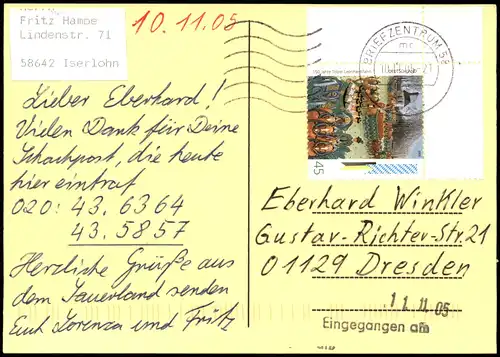 Herrn
Fritz Hampe
Lindenstr. 71
58642 Iserlohn
10.11.05
BRIEFZENTRUM 58
45
Lieber Eberhard!
Vielen Dank für Deine
Schachpost, die heute
hier eintraf
020: 43. 6364
43. 5857
Herzliche Grüße aus
dem Sauerland senden
Euch Lorenza und Fritz
Eberhard Winkler
Gustav-Richter-Str. 21
01129 Dresden
11. 11. 05
Eingegangen am